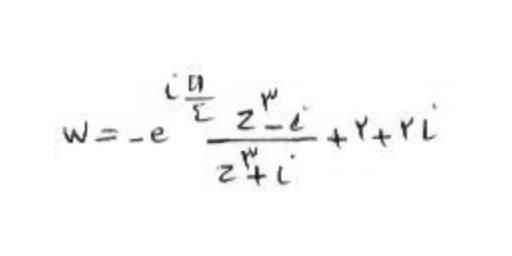 w = -e^{i\frac{π}{٤}} \frac{z^٣ - i}{z^٣ + i} + ٢ + ٢i